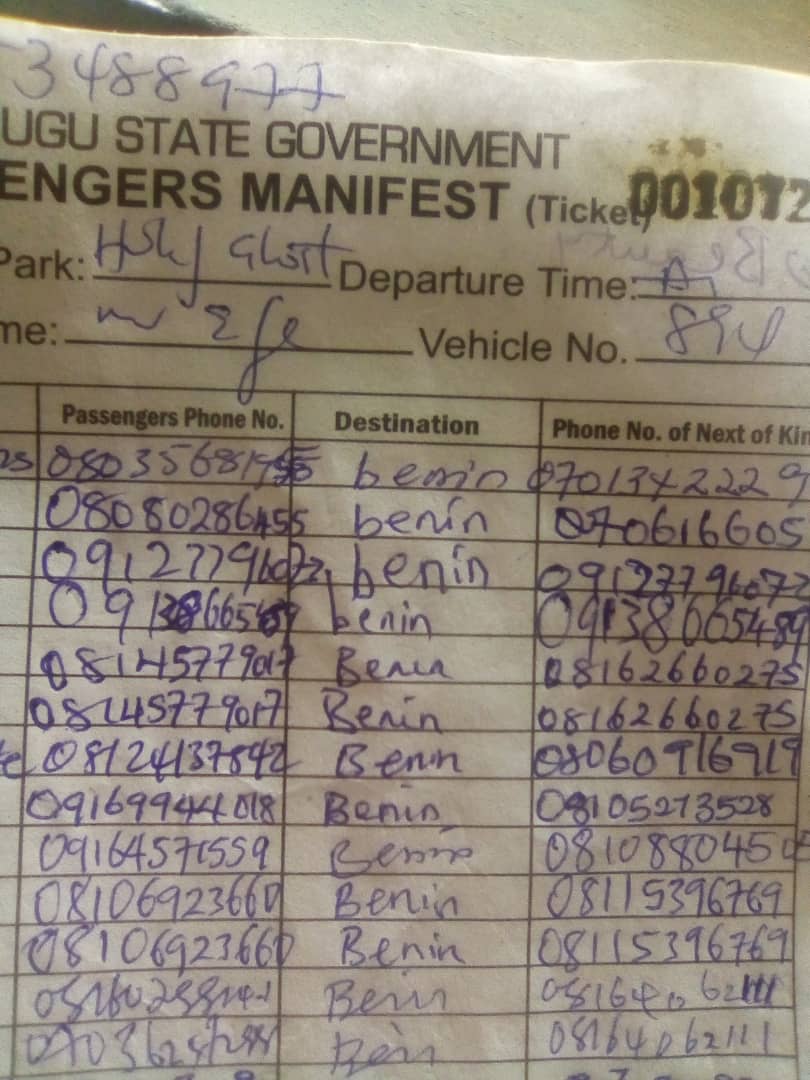 3488977
UGU STATE GOVERNMENT
ENGERS MANIFEST (Ticket) 001072
Park: Holy Ghost Departure Time:
me: Mr Efe Vehicle No. 894
Passengers Phone No. Destination Phone No. of Next of Kin
benin 07013422229
08080286455 benin 070616605
09127796072 benin 09127796072
benin 09138665489
08145779017 Benin 08162660275
08145779017 Benin 08162660275
08124137842 Benin 08060916919
09169944018 Benin 08105273528
09164571559 Benin 0810880450
08106923660 Benin 08115396769
08106923660 Benin 08115396769
Benin 08164062111
Benin 08164062111